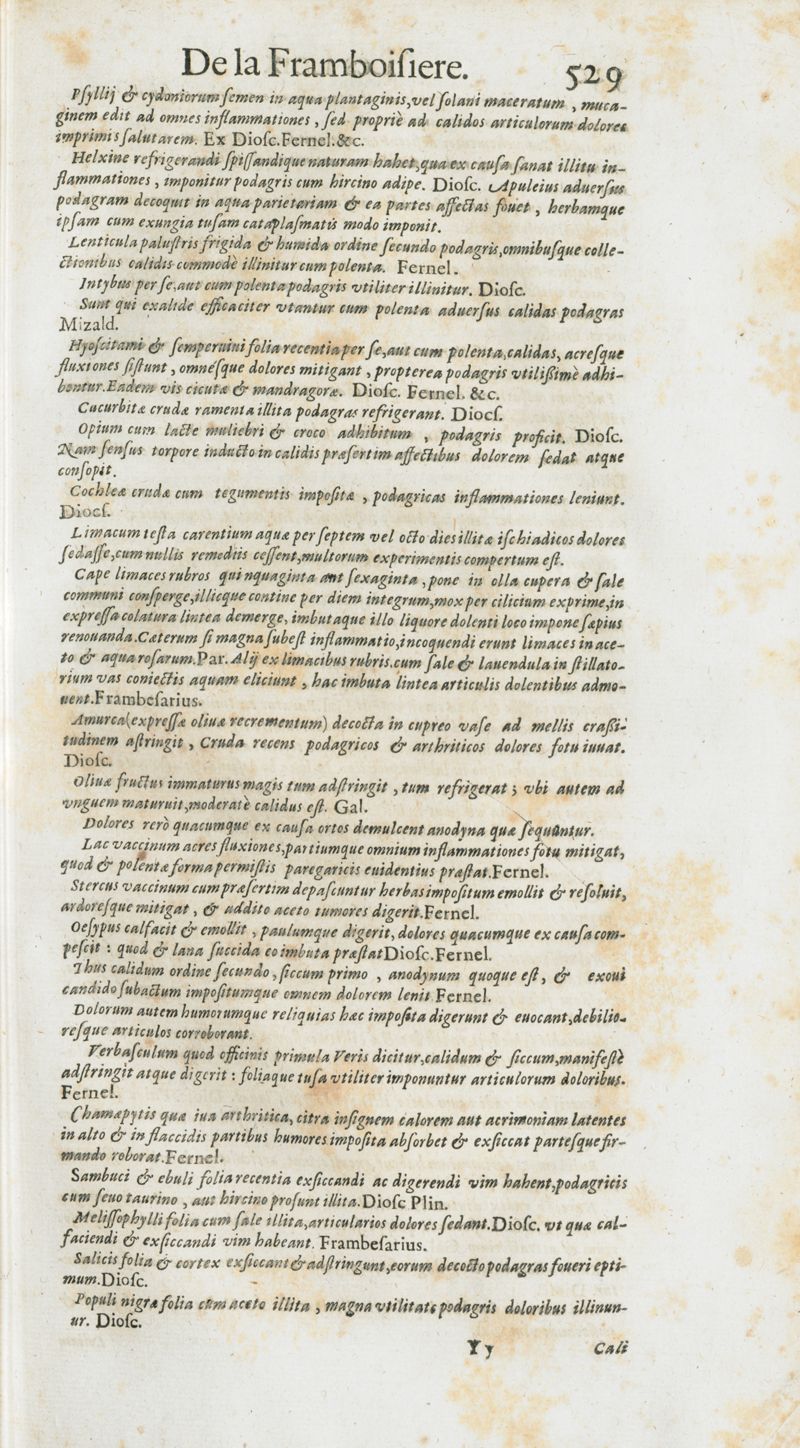 De la Framboiſiere. 529
Pſyllij & cydoniorum ſemen in aqua plantaginis, vel ſolani maceratum , muca-
ginem edit ad omnes inflammationes , ſed propriè ad calidos articulorum dolores
imprimis ſalutarem. Ex Dioſc. Fernel. &c.
Helxine refrigerandi ſpiſſandique naturam habet, qua ex cauſa ſanat illitu in-
flammationes , imponitur podagris cum hircino adipe. Dioſc. Apuleius aduerſus
podagram decoquit in aqua parietariam & ea partes affectas fouet , herbamque
ipſam cum exungia tuſam cataplaſmatis modo imponit.
Lenticula paluſtris frigida & humida ordine ſecundo podagris, omnibuſque colle-
ctionibus calidis commodè illinitur cum polenta. Fernel.
Intybus per ſe, aut cum polenta podagris vtiliter illinitur. Dioſc.
Sunt qui exalide efficaciter vtantur cum polenta aduerſus calidas podagras
Mizald.
Hyoſciami & ſemperuiui folia recentia per ſe, aut cum polenta, calidas, acreſque
fluxiones ſiſtunt , omnéſque dolores mitigant , propterea podagris vtiliſſimè adhi-
bentur. Eadem vis cicutæ & mandragoræ. Dioſc. Fernel. &c.
Cucurbitæ crudæ ramenta illita podagras refrigerant. Diocſ.
Opium cum lacte muliebri & croco adhibitum , podagris proficit. Dioſc.
Nam ſenſus torpore inducto in calidis præſertim affectibus dolorem ſedat atque
conſopit.
Cochleæ crudæ cum tegumentis impoſitæ , podagricas inflammationes leniunt.
Diocſ.
Limacum teſta carentium aquæ per ſeptem vel octo dies illitæ iſchiadicos dolores
ſedaſſe, cum nullis remediis ceſſent, multorum experimentis compertum eſt.
Cape limaces rubros quinquaginta aut ſexaginta , pone in olla cuperà & ſale
communi conſperge, illicque contine per diem integrum, mox per cilicium exprime, in
expreſſa colatura lintea demerge, imbutaque illo liquore dolenti loco impone ſæpius
renouanda. Cæterum ſi magna ſubeſt inflammatio, incoquendi erunt limaces in ace-
to & aqua roſarum. Par. Alij ex limacibus rubris, cum ſale & lauendula in ſtillato-
rium vas coniectis aquam eliciunt , hac imbuta lintea articulis dolentibus admo-
uent. Frambeſarius.
Amurca (expreſſæ oliuæ recrementum) decocta in cupreo vaſe ad mellis craſſi-
tudinem aſtringit , Cruda recens podagricos & arthriticos dolores fotu iuuat.
Dioſc.
Oliuæ fructus immaturus magis tum adſtringit , tum refrigerat ; vbi autem ad
vnguem maturuit, moderatè calidus eſt. Gal.
Dolores rerò quacumque ex cauſa ortos demulcent anodyna quæ ſequuntur.
Lac vaccinum acres fluxiones, partiumque omnium inflammationes fotu mitigat,
quod & polentæ forma permiſtis paregaricis euidentius præſtat. Fernel.
Stercus vaccinum cum præſertim depaſcuntur herbas impoſitum emollit & reſoluit,
ardoreſque mitigat , & addito aceto tumores digerit. Fernel.
Oeſypus calfacit & emollit , paulumque digerit, dolores quacumque ex cauſa com-
peſcit : quod & lana ſuccida eo imbuta præſtat Dioſc. Fernel.
Thus calidum ordine ſecundo, ſiccum primo , anodynum quoque eſt, & exoui
candido ſubactum impoſitumque omnem dolorem lenit Fernel.
Dolorum autem humorumque reliquias hæc impoſita digerunt & euocant, debilio-
reſque articulos corroborant.
Verbaſculum quod officinis primula Veris dicitur, calidum & ſiccum, manifeſtè
adſtringit atque digerit : foliaque tuſa vtiliter imponuntur articulorum doloribus.
Fernel.
Chamæpytis quæ iua arthritica, citra inſignem calorem aut acrimoniam latentes
in alto & in flaccidis partibus humores impoſita abſorbet & exſiccat parteſque fir-
mando roborat. Fernel.
Sambuci & ebuli folia recentia exſiccandi ac digerendi vim habent, podagricis
cum ſeuo taurino , aut hircino proſunt illita. Dioſc Plin.
Meliſſophylli folia cum ſale illita, articularios dolores ſedant. Dioſc. vt quæ cal-
faciendi & exſiccandi vim habeant. Frambeſarius.
Salicis folia & cortex exſiccant & adſtringunt, eorum decocto podagras foueri opti-
mum. Dioſc.
Populi nigræ folia cum aceto illita , magna vtilitate podagris doloribus illinun-
ur. Dioſc.
Yy Cali